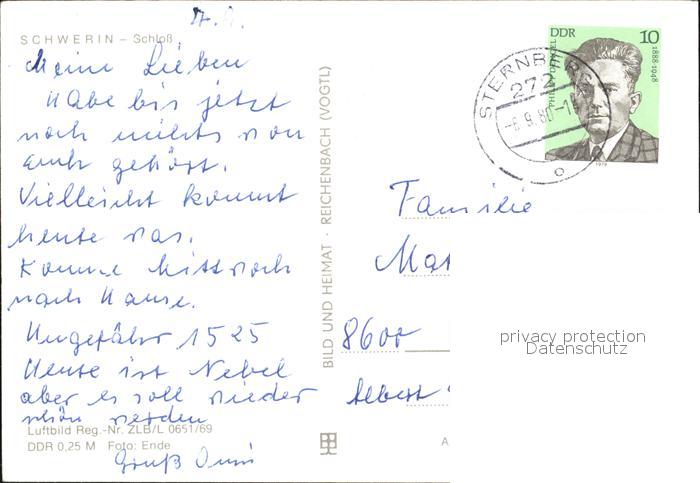 SCHWERIN – Schloß
Meine Lieben
Habe bis jetzt
noch nichts von
Euch gehört.
Vielleicht kommt
heute was.
Komme Mittwoch
nach Hause.
Ungefähr 15 25
Heute ist Nebel
aber es soll wieder
schön werden
Luftbild Reg.-Nr. ZLB/L 0651/69
DDR 0,25 M Foto: Ende
Gruß
BILD UND HEIMAT · REICHENBACH (VOGTL)
DDR 10
1888-1948
1979
STERNBERG
272
-8.9.80-1
Familie
8600
Albert
A
privacy protection
Datenschutz